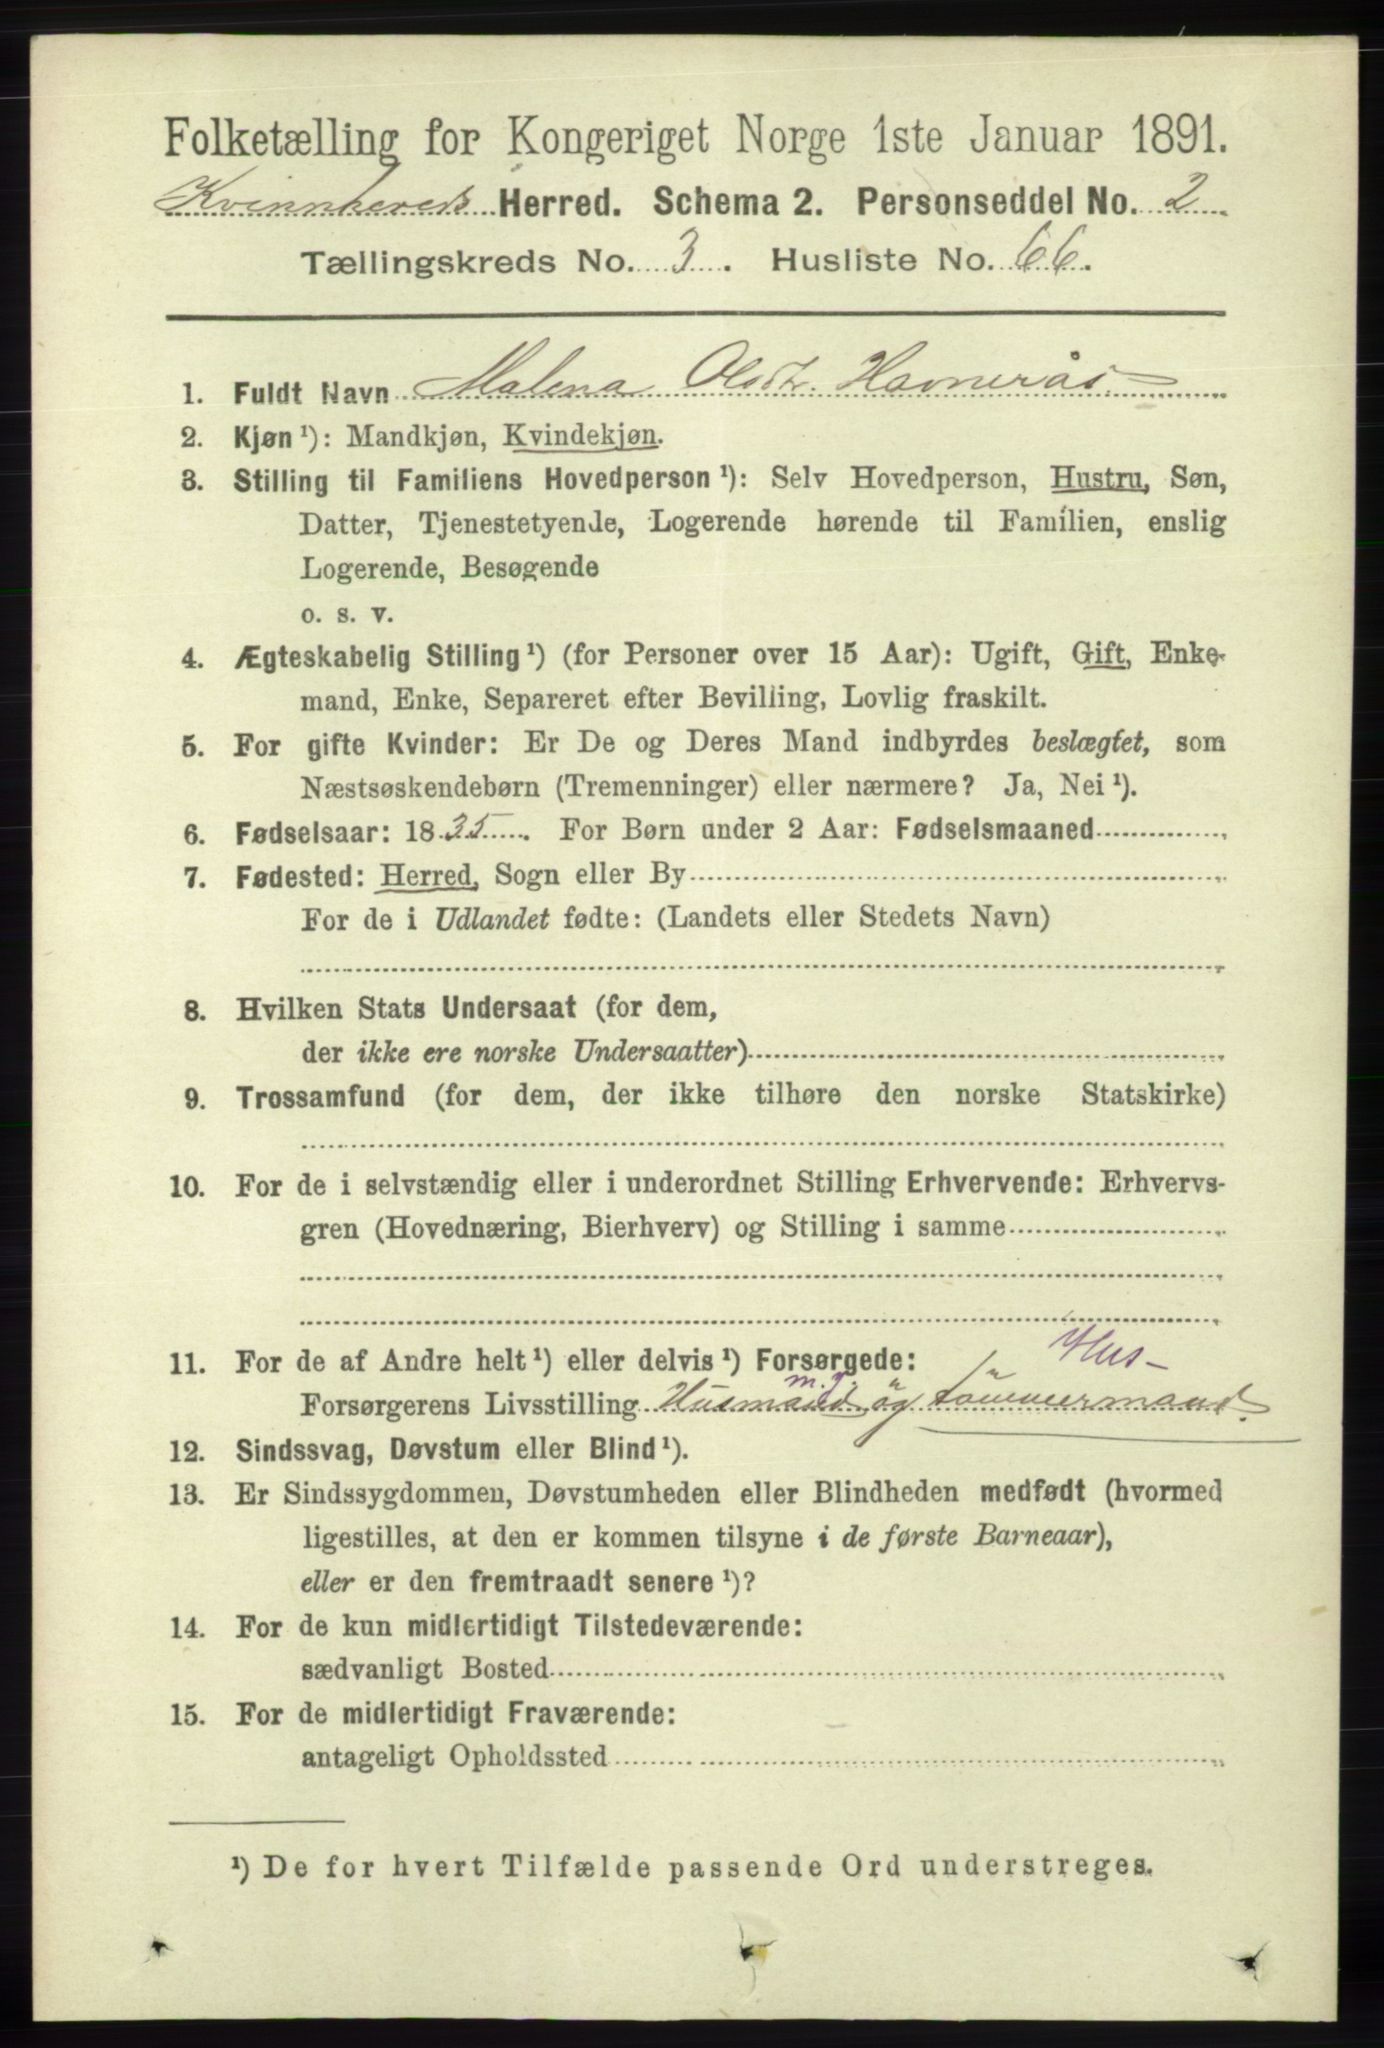 Folketælling for Kongeriget Norge 1ste Januar 1891.
Kvinnhereds Herred. Schema 2. Personseddel No. 2
Tællingskreds No. 3. Husliste No. 66.
1. Fuldt Navn Malena Olsdtr. Havnerås
2. Kjøn ¹): Mandkjøn, Kvindekjøn.
3. Stilling til Familiens Hovedperson ¹): Selv Hovedperson, Hustru, Søn,
Datter, Tjenestetyende, Logerende hørende til Familien, enslig
Logerende, Besøgende
o. s. v.
4. Ægteskabelig Stilling ¹) (for Personer over 15 Aar): Ugift, Gift, Enke-
mand, Enke, Separeret efter Bevilling, Lovlig fraskilt.
5. For gifte Kvinder: Er De og Deres Mand indbyrdes beslægtet, som
Næstsøskendebørn (Tremenninger) eller nærmere? Ja, Nei ¹).
6. Fødselsaar: 1835. For Børn under 2 Aar: Fødselsmaaned
7. Fødested: Herred, Sogn eller By
For de i Udlandet fødte: (Landets eller Stedets Navn)
8. Hvilken Stats Undersaat (for dem,
der ikke ere norske Undersaatter)
9. Trossamfund (for dem, der ikke tilhøre den norske Statskirke)
10. For de i selvstændig eller i underordnet Stilling Erhvervende: Erhvervs-
gren (Hovednæring, Bierhverv) og Stilling i samme
Hus-
11. For de af Andre helt ¹) eller delvis ¹) Forsørgede:
m. J.
Forsørgerens Livsstilling Husmand og tömmermand.
12. Sindssvag, Døvstum eller Blind ¹).
13. Er Sindssygdommen, Døvstumheden eller Blindheden medfødt (hvormed
ligestilles, at den er kommen tilsyne i de første Barneaar),
eller er den fremtraadt senere ¹)?
14. For de kun midlertidigt Tilstedeværende:
sædvanligt Bosted
15. For de midlertidigt Fraværende:
antageligt Opholdssted
¹) De for hvert Tilfælde passende Ord understreges.